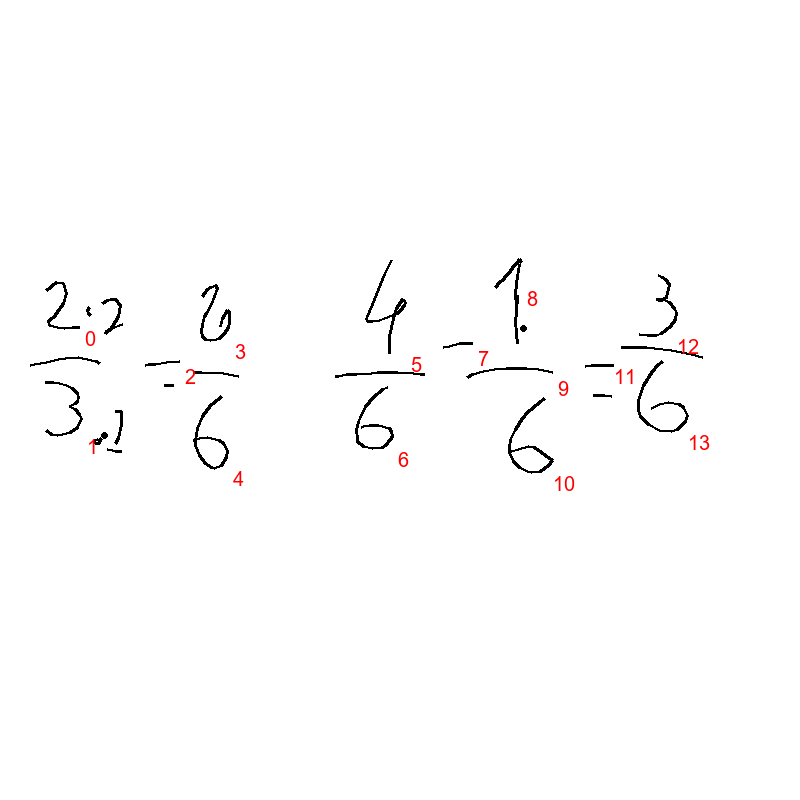 2·2/3·2 = 6/6 4/6 - 1/6 = 3/6
0 1 2 3 4 5 6 7 8 9 10 11 12 13